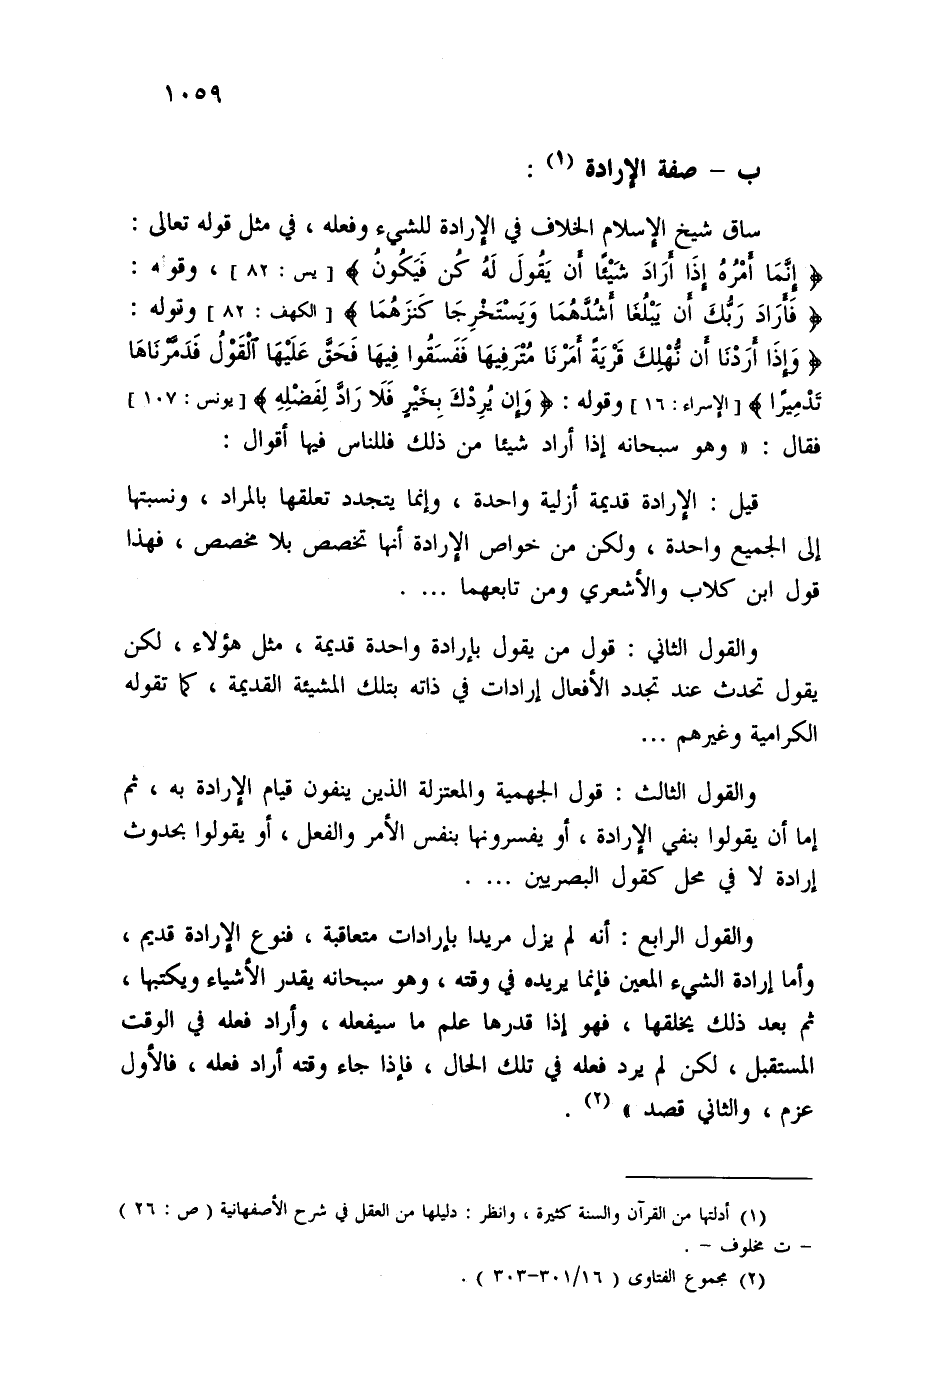 ١٠٥٩
ب – صفة الإرادة (١) :
ساق شيخ الإسلام الخلاف في الإرادة للشيء وفعله ، في مثل قوله تعالى :
﴿ إِنَّمَا أَمْرُهُ إِذَا أَرَادَ شَيْئًا أَن يَقُولَ لَهُ كُن فَيَكُونُ ﴾ [ يس : ٨٢ ] ، وقوله :
﴿ فَأَرَادَ رَبُّكَ أَن يَبْلُغَا أَشُدَّهُمَا وَيَسْتَخْرِجَا كَنزَهُمَا ﴾ [ الكهف : ٨٢ ] وقوله :
﴿ وَإِذَا أَرَدْنَا أَن نُّهْلِكَ قَرْيَةً أَمَرْنَا مُتْرَفِيهَا فَفَسَقُوا فِيهَا فَحَقَّ عَلَيْهَا الْقَوْلُ فَدَمَّرْنَاهَا
تَدْمِيرًا ﴾ [ الإسراء : ١٦ ] وقوله : ﴿ وَإِن يُرِدْكَ بِخَيْرٍ فَلَا رَادَّ لِفَضْلِهِ ﴾ [ يونس : ١٠٧ ]
فقال : « وهو سبحانه إذا أراد شيئا من ذلك فللناس فيها أقوال :
قيل : الإرادة قديمة أزلية واحدة ، وإنما يتجدد تعلقها بالمراد ، ونسبتها
إلى الجميع واحدة ، ولكن من خواص الإرادة أنها تخصص بلا مخصص ، فهذا
قول ابن كلاب والأشعري ومن تابعهما ... .
والقول الثاني : قول من يقول بإرادة واحدة قديمة ، مثل هؤلاء ، لكن
يقول تحدث عند تجدد الأفعال إرادات في ذاته بتلك المشيئة القديمة ، كما تقوله
الكرامية وغيرهم ...
والقول الثالث : قول الجهمية والمعتزلة الذين ينفون قيام الإرادة به ، ثم
إما أن يقولوا بنفي الإرادة ، أو يفسرونها بنفس الأمر والفعل ، أو يقولوا بحدوث
إرادة لا في محل كقول البصريين ... .
والقول الرابع : أنه لم يزل مريدا بإرادات متعاقبة ، فنوع الإرادة قديم ،
وأما إرادة الشيء المعين فإنما يريده في وقته ، وهو سبحانه يقدر الأشياء ويكتبها ،
ثم بعد ذلك يخلقها ، فهو إذا قدرها علم ما سيفعله ، وأراد فعله في الوقت
المستقبل ، لكن لم يرد فعله في تلك الحال ، فإذا جاء وقته أراد فعله ، فالأول
عزم ، والثاني قصد » (٢) .
(١) أدلتها من القرآن والسنة كثيرة ، وانظر : دليلها من العقل في شرح الأصفهانية ( ص : ٢٦ )
– ت مخلوف – .
(٢) مجموع الفتاوى ( ٣٠١/١٦-٣٠٣ ) .